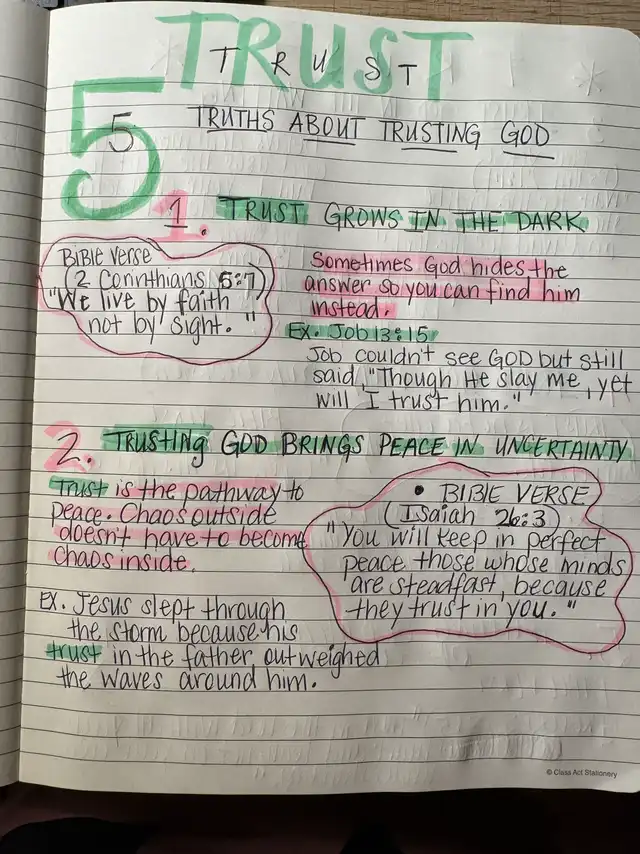 TRUST
T R U S T
5
5
TRUTHS ABOUT TRUSTING GOD
1. TRUST GROWS IN THE DARK
BiBlE Verse
(2 Corinthians 5:7)
"We live by faith
not by sight."
Sometimes God hides the
answer so you can find him
instead.
Ex. Job 13:15
Job couldn't see GOD but still
said, "Though He slay me, yet
will I trust him."
2. TRUSTing GOD BRINGS PEACE IN UNCERTAINTY
Trust is the pathway to
peace. Chaos outside
doesn't have to become
chaos inside.
• BIBlE VERSE
(Isaiah 26:3)
"You will keep in perfect
peace those whose minds
are steadfast, because
they trust in you."
EX. Jesus slept through
the storm because his
trust in the father outweighed
the waves around him.
© Class Act Stationery